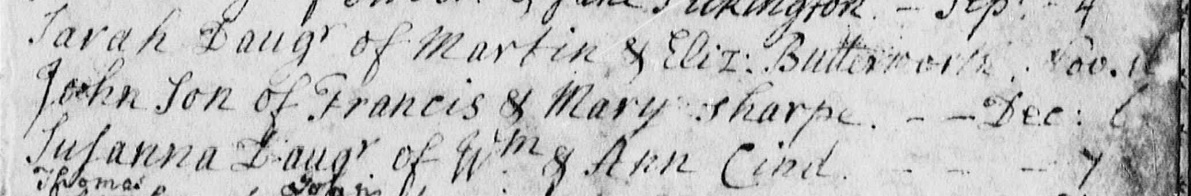 & Jane Pilkington. - Sep: - 4
Sarah Daugr of Martin & Eliz: Butterworth. Nov. 
John Son of Francis & Mary Sharpe. - - Dec: 6
Susanna Daugr of Wm & Ann Cind. - - - 7
Thomas John